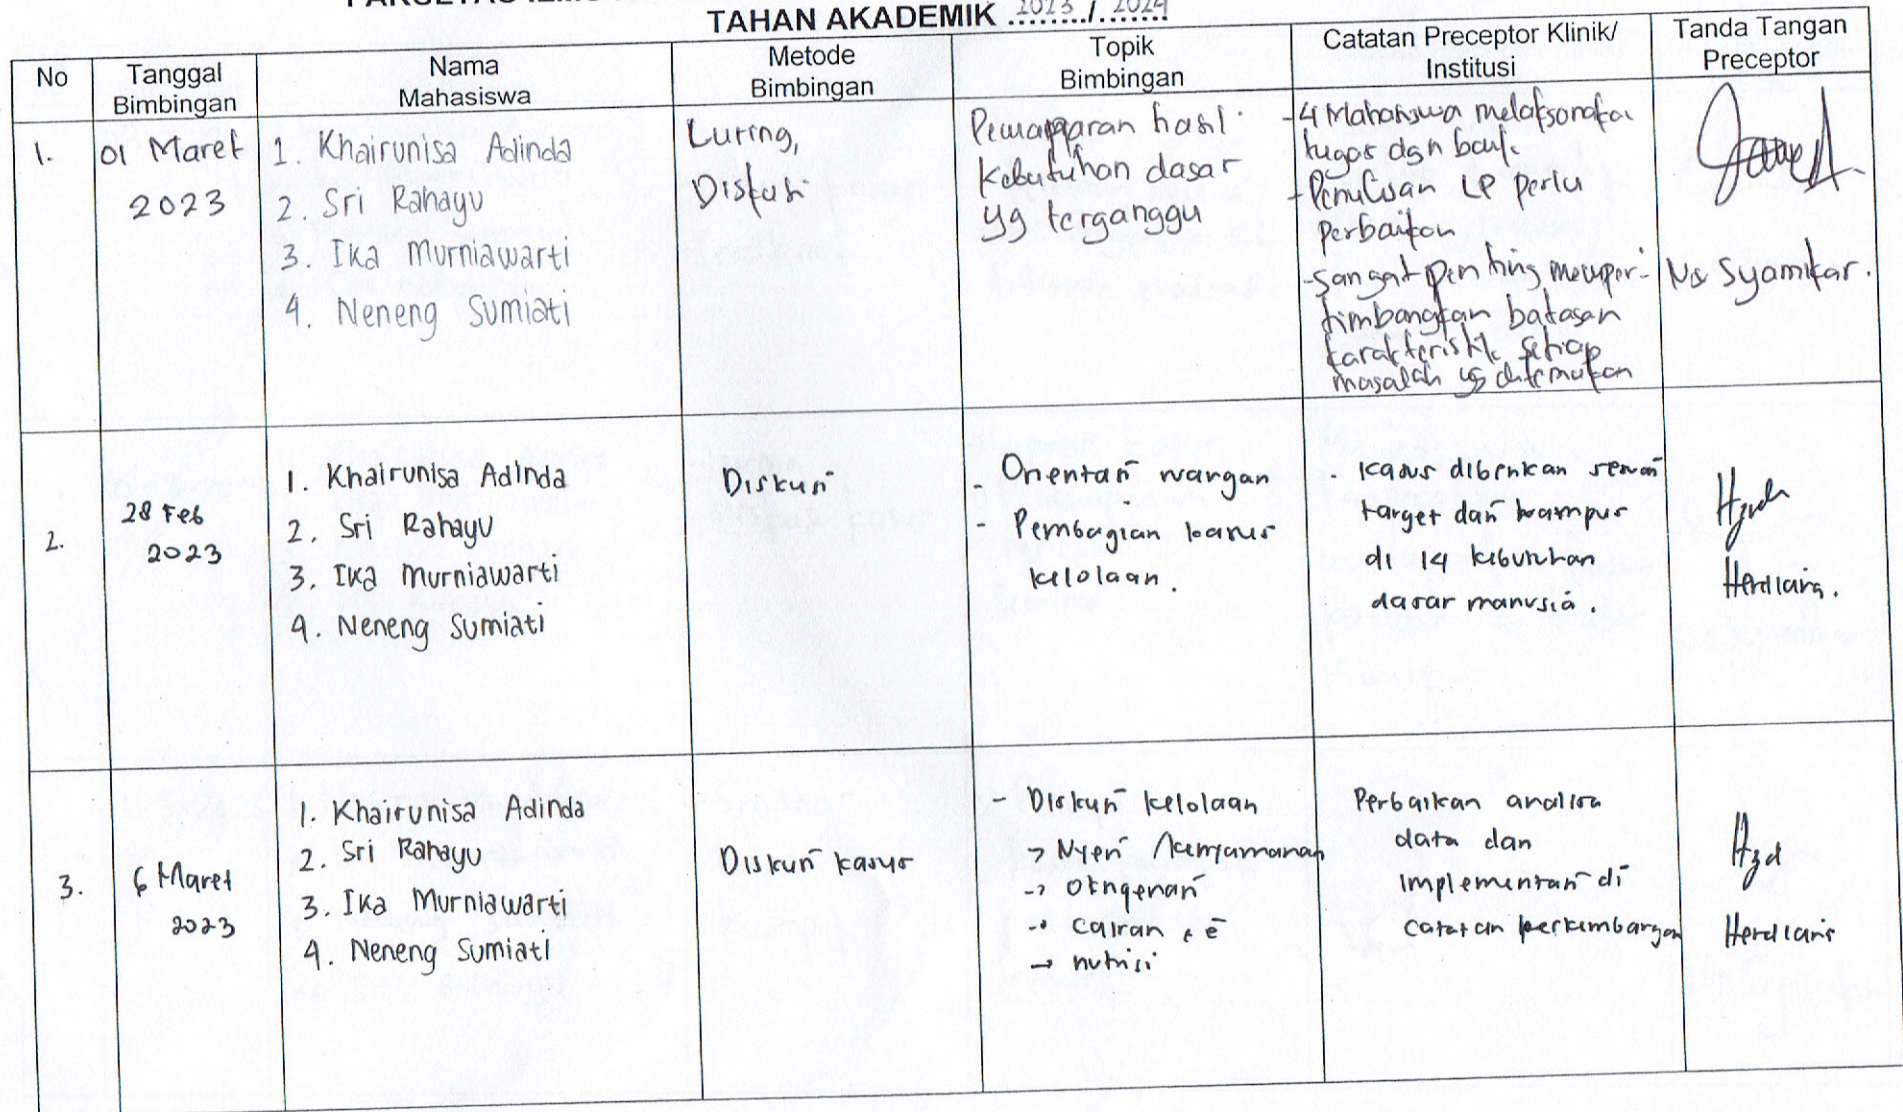 TAHAN AKADEMIK 2023/2024
No
Tanggal
Bimbingan
Nama
Mahasiswa
Metode
Bimbingan
Topik
Bimbingan
Catatan Preceptor Klinik/
Institusi
Tanda Tangan
Preceptor
1.
01 Maret
2023
1. Khairunisa Adinda
2. Sri Rahayu
3. Ika Murniawarti
4. Neneng Sumiati
Luring,
Diskusi
Pemaparan hasil
Kebutuhan dasar
yg terganggu
- 4 Mahasiswa melaksanakan
tugas dgn baik
- Penulisan LP perlu
perbaikan
- Sangat penting memper-
timbangkan batasan
karakteristik setiap
masalah yg ditemukan
Ns Syamikar.
2.
28 Feb
2023
1. Khairunisa Adinda
2. Sri Rahayu
3. Ika Murniawarti
4. Neneng Sumiati
Diskusi
- Orientasi ruangan
- Pembagian kasus
kelolaan.
Kasus diberikan sesuai
target dari kampus
di 14 kebutuhan
dasar manusia.
3.
6 Maret
2023
1. Khairunisa Adinda
2. Sri Rahayu
3. Ika Murniawarti
4. Neneng Sumiati
Diskusi kasus
- Diskusi kelolaan
→ Nyeri /kenyamanan
→ Oksigenasi
→ Cairan
→ nutrisi
Perbaikan analisa
data dan
implementasi di
catatan perkembangan